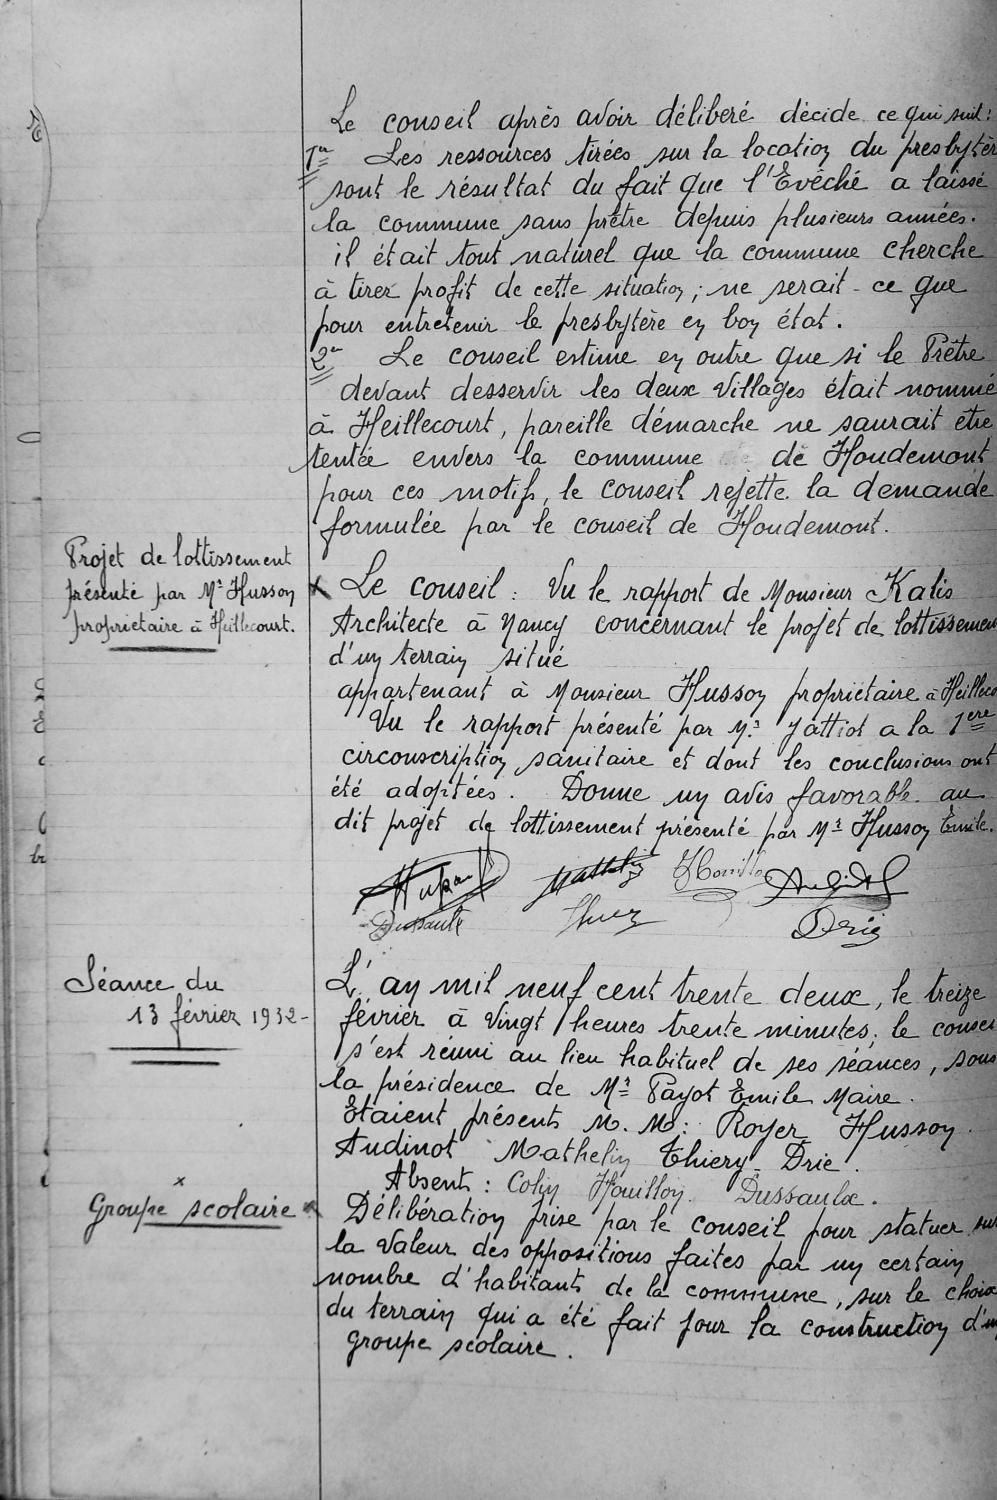 Le conseil après avoir déliberé décide ce qui suit :
1er Les ressources tirées sur la location du presbytèr
sont le résultat du fait que l'Evêché a laissé
la commune sans prêtre depuis plusieurs années.
il était tout naturel que la commune cherche
à tirer profit de cette situation ; ne serait-ce que
pour entretenir le presbytère en bon état.
2e Le conseil estime en outre que si le Prêtre
devant desservir les deux villages était nommé
à Heillecourt, pareille démarche ne saurait être
tentée envers la commune de Houdemont
pour ces motifs, le conseil rejette la demande
formulée par le conseil de Houdemont.
Projet de lottissement
présenté par Mr Husson
propriétaire à Heillecourt.
x Le conseil : Vu le rapport de Monsieur Kalis
Architecte à Nancy concernant le projet de lottissemen
d'un terrain situé
appartenant à Monsieur Husson propriétaire à Heilleco
Vu le rapport présenté par Mr Jattiot a la 1ère
circonscription sanitaire et dont les conclusions ont
été adoptées. Donne un avis favorable au
dit projet de lottissement présenté par Mr Husson Emile.
Mathelin
Dussaulx
Drie
Séance du
13 février 1932-
L'an mil neuf cent trente deux, le treize
février à vingt heures trente minutes, le conseil
s'est réuni au lieu habituel de ses séances, sous
la présidence de Mr Payot Emile Maire.
Etaient présents M. M. : Royer Husson.
Audinot Mathelin Thiery - Drie.
Absent : Colin Houillon. Dussaulx.
x
Groupe scolaire
Délibération prise par le conseil pour statuer sur
la valeur des oppositions faites par un certain
nombre d'habitants de la commune, sur le choix
du terrain qui a été fait pour la construction d'un
groupe scolaire.